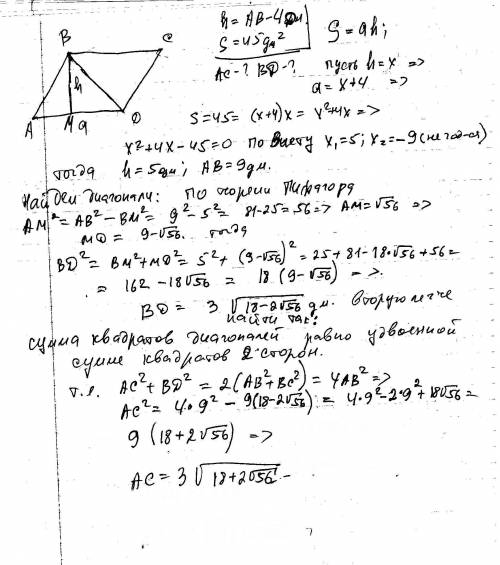 B C
h
A M a D
h = AB - 4дм
S = 45 дм²
AC - ? BD - ?
S = ah;
пусть h = x =>
a = x+4 =>
S = 45 = (x+4)x = x²+4x =>
x²+4x-45=0 по Виету x₁=5; x₂=-9
тогда h = 5дм; AB = 9дм.
Найдем диагонали: По теореме Пифагора
AM² = AB² - BM² = 9² - 5² = 81-25=56 => AM=√56 =>
MD = 9-√56. тогда
BD² = BM²+MD² = 5² + (9-√56)² = 25+81-18·√56+56=
= 162 - 18√56 = 18 (9-√56) =>
BD = 3 √18-2√56 дм. вторую легче
найти так:
сумма квадратов диагоналей равно удвоенной
сумме квадратов 2 сторон.
т.е. AC²+BD² = 2(AB²+BC²) = 4AB² =>
AC² = 4·9² - 9(18-2√56) = 4·9²-2·9²+18√56=
9 (18+2√56) =>
AC = 3 √18+2√56 -